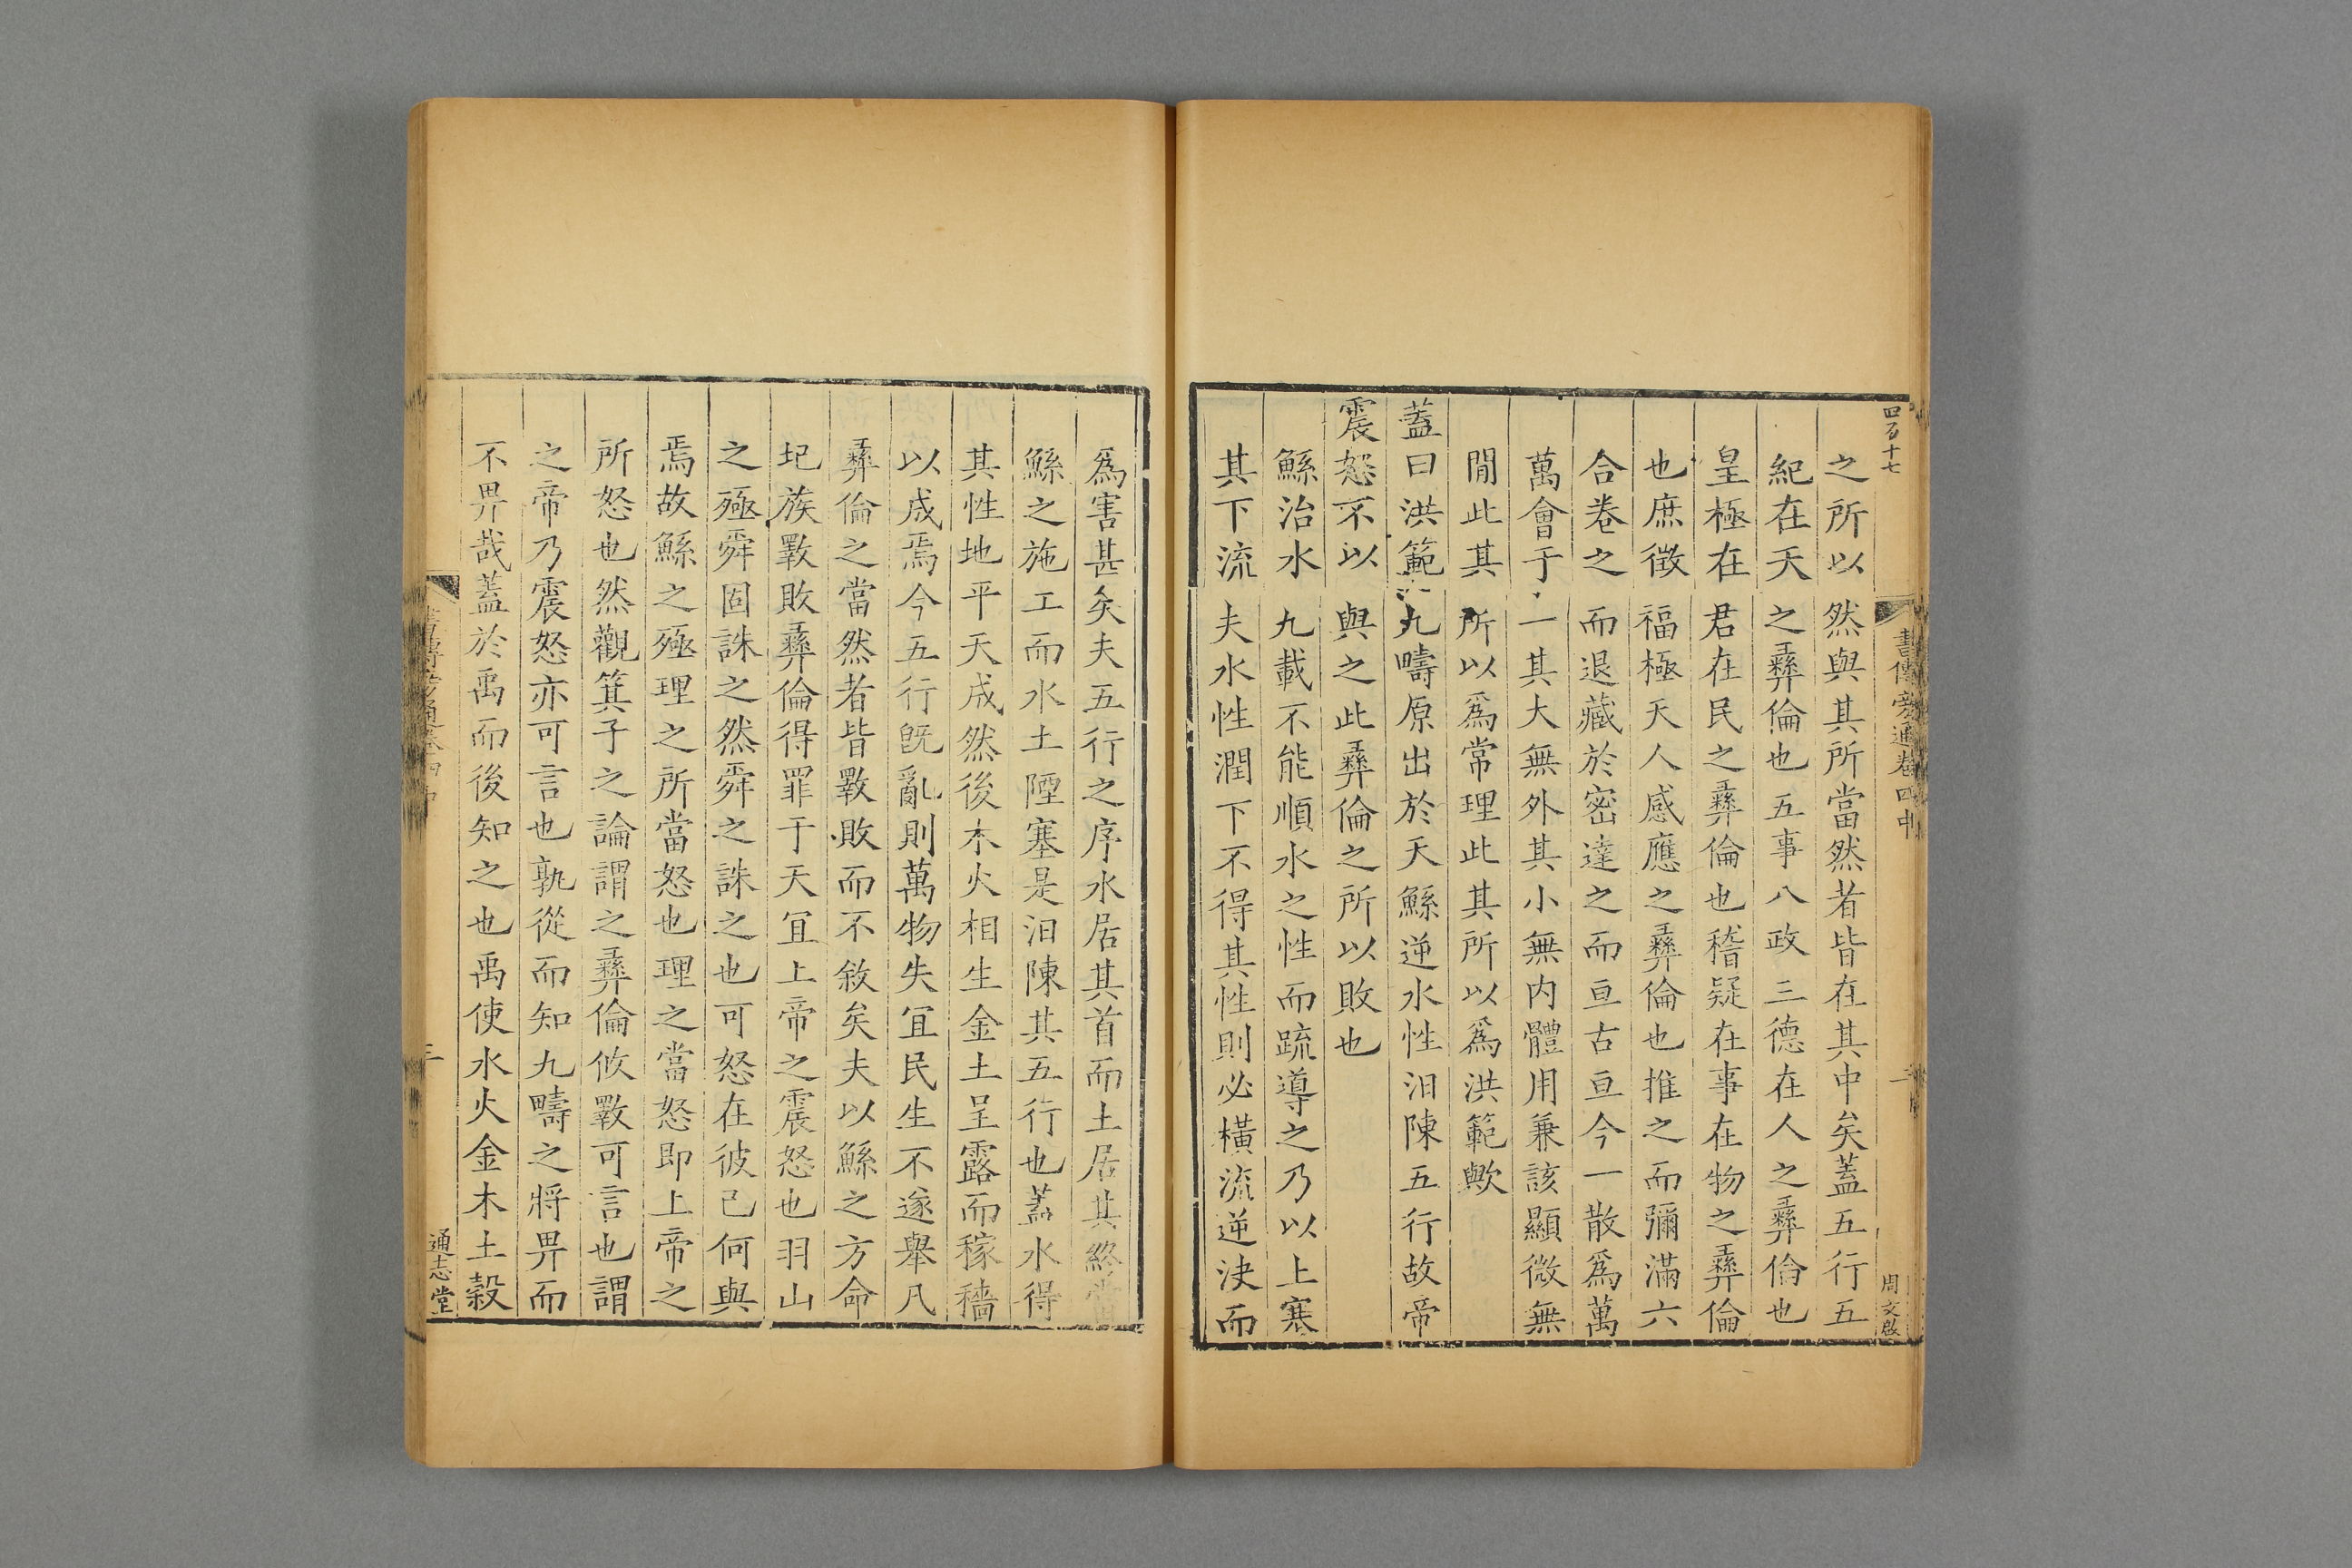 四百十七
書傳旁通卷四中
二
周文啟
之所以然與其所當然者皆在其中矣蓋五行五
紀在天之彞倫也五事八政三德在人之彞倫也
皇極在君在民之彞倫也稽疑在事在物之彞倫
也庶徴福極天人感應之彞倫也推之而彌滿六
合卷之而退藏於密達之而亘古亘今一散爲萬
萬會于一其大無外其小無内體用兼該顯微無
閒此其所以爲常理此其所以爲洪範歟
蓋曰洪範九疇原出於天鯀逆水性汩陳五行故帝
震怒不以與之此彞倫之所以敗也
鯀治水九載不能順水之性而疏導之乃以上塞
其下流夫水性潤下不得其性則必横流逆決而
爲害甚矣夫五行之序水居其首而土居其終
鯀之施工而水土陻塞是汩陳其五行也蓋水得
其性地平天成然後木火相生金土呈露而稼穡
以成焉今五行旣亂則萬物失宜民生不遂舉凡
彞倫之當然者皆斁敗而不敘矣夫以鯀之方命
圮族斁敗彞倫得罪于天宜上帝之震怒也羽山
之殛舜固誅之然舜之誅之也可怒在彼己何與
焉故鯀之殛理之所當怒也理之當怒即上帝之
所怒也然觀箕子之論謂之彞倫攸斁可言也謂
之帝乃震怒亦可言也孰從而知九疇之將畀而
不畀哉蓋於禹而後知之也禹使水火金木土榖
三
通志堂